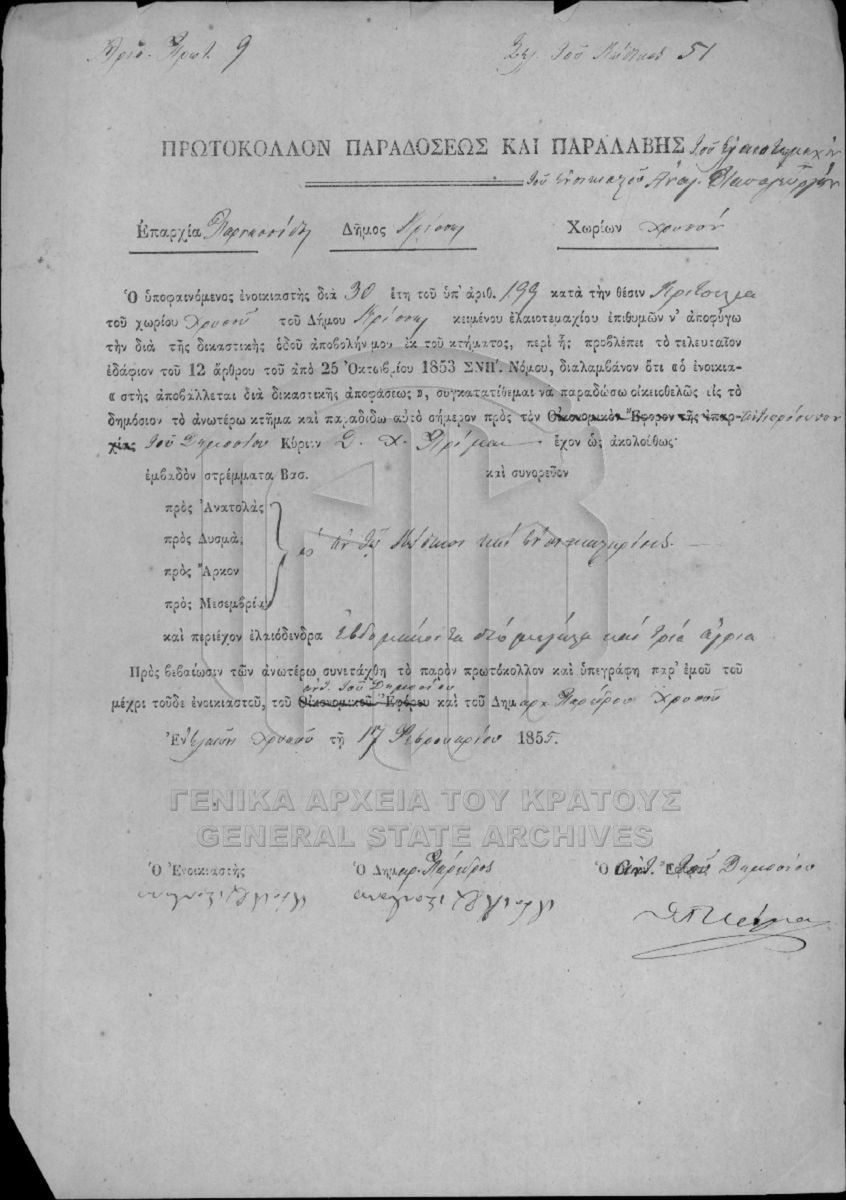 Αριθ. Πρωτ. 9 Σελ. τοῦ Κώδικος 51
ΠΡΩΤΟΚΟΛΛΟΝ ΠΑΡΑΔΟΣΕΩΣ ΚΑΙ ΠΑΡΑΛΑΒΗΣ τοῦ ἐλαιοτεμαχίου
τοῦ ἐνοικιαστοῦ Ἀναγ.
Ἐπαρχία Παρνασσίδος Δῆμος Κρίσσης Χωρίον Χρυσοῦ
Ὁ ὑποφαινόμενος ἐνοικιαστὴς διὰ 30 ἔτη τοῦ ὑπ' ἀριθ. 199 κατὰ τὴν θέσιν
τοῦ χωρίου Χρυσοῦ τοῦ Δήμου Κρίσσης κειμένου ἐλαιοτεμαχίου ἐπιθυμῶν ν' ἀποφύγω
τὴν διὰ τῆς δικαστικῆς ὁδοῦ ἀποβολήν μου ἐκ τοῦ κτήματος, περὶ ἧς προβλέπει τὸ τελευταῖον
ἐδάφιον τοῦ 12 ἄρθρου τοῦ ἀπὸ 25 Ὀκτωβρίου 1853 ΣΝΠ'. Νόμου, διαλαμβάνον ὅτι «ὁ ἐνοικια-
« στὴς ἀποβάλλεται διὰ δικαστικῆς ἀποφάσεως », συγκατατίθεμαι νὰ παραδώσω οἰκειοθελῶς εἰς τὸ
δημόσιον τὸ ἀνωτέρω κτῆμα καὶ παραδίδω αὐτὸ σήμερον πρὸς τὸν Οἰκονομικὸν Ἔφορον τῆς ἐπαρ-
χίας τοῦ Δημοσίου Κύριον ἔχον ὡς ἀκολούθως·
ἐμβαδὸν στρέμματα Βασ. καὶ συνορεῦον
πρὸς Ἀνατολὰς
πρὸς Δυσμὰς
πρὸς Ἄρκον
πρὸς Μεσεμβρίαν
ὡς ἐν τῷ Κώδικι καὶ
καὶ περιέχον ἐλαιόδενδρα ἑβδομήκοντα δύο μεγάλα καὶ τρία ἄγρια
Πρὸς βεβαίωσιν τῶν ἀνωτέρω συνετάχθη τὸ παρὸν πρωτόκολλον καὶ ὑπεγράφη παρ' ἐμοῦ τοῦ
ἀντ. τοῦ Δημοσίου
μέχρι τοῦδε ἐνοικιαστοῦ, τοῦ Οἰκονομικοῦ Ἐφόρου καὶ τοῦ Δημαρχ. Παρέδρου Χρυσοῦ
Ἐν Χρυσοῦ τῇ 17 Φεβρουαρίου 1855.
ΓΕΝΙΚΑ ΑΡΧΕΙΑ ΤΟΥ ΚΡΑΤΟΥΣ
GENERAL STATE ARCHIVES
Ὁ Ἐνοικιαστὴς Ὁ Δημαρ. Πάρεδρος Ὁ ἀντ. τοῦ Δημοσίου